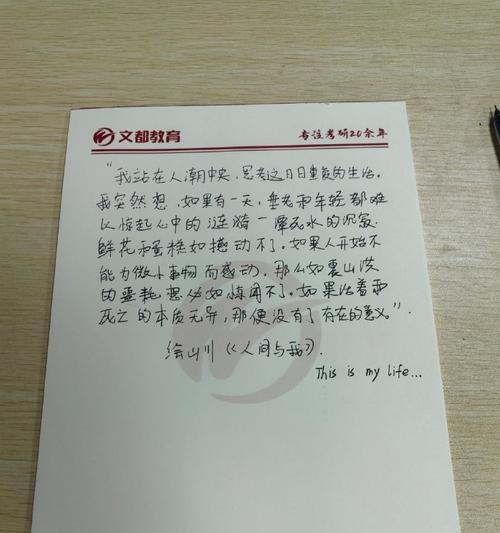 文都教育
专注考研20余年
“我站在人潮中央,思考这日日重复的生活.
我突然想,如果有一天,垂老和年轻都难
以惊起心中的涟漪一潭死水的沉寂.
鲜花和蛋糕如撼动不了.如果人开始不
能为微小事物而感动.那么如裹山洪
的噩耗想必如惊闻不了.如果活着和
死亡的本质无异,那便没有了存在的意义.”
绘山川《人间与我》.
This is my life...